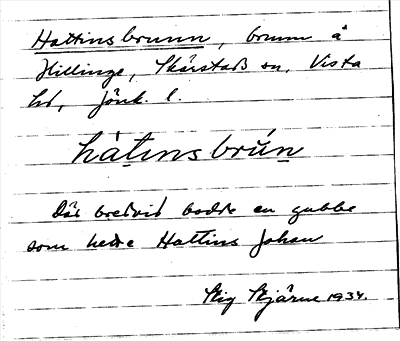 Hattinsbrunn, brunn å
Hillinge, Skärstads sn, Vista
hd, Jönk. l.
hàt̠ɩnsbrún̠
Där bredvid bodde en gubbe
som hette Hattins Johan
Stig Skjärne 1934.